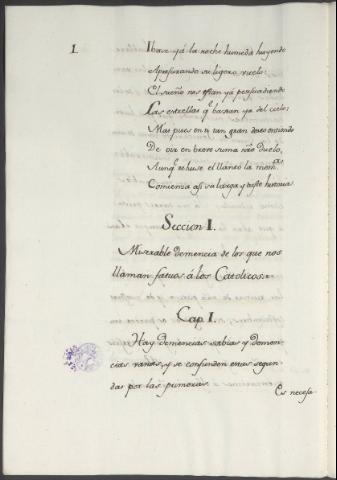 1. Ibase ya la noche humeda huyendo
Apresurando su ligero vuelo:
El sueño nos estan ya persuadiendo
Las estrellas qᵉ baxan ya del cielo:
Mas pues en ti tan gran deseo entiendo
De oir en breve suma nro duelo,
Aunqᵉ rehuse el llanto la memᵃ
Comienza assi la larga y triste historia
Seccion I.
Miserable demencia de los que nos
llaman fatuos á los Catolicos.
Cap. I.
Hay demencias sabias y demen-
cias vanas, y se confunden estas segun-
das por las primeras.
Es necesa-